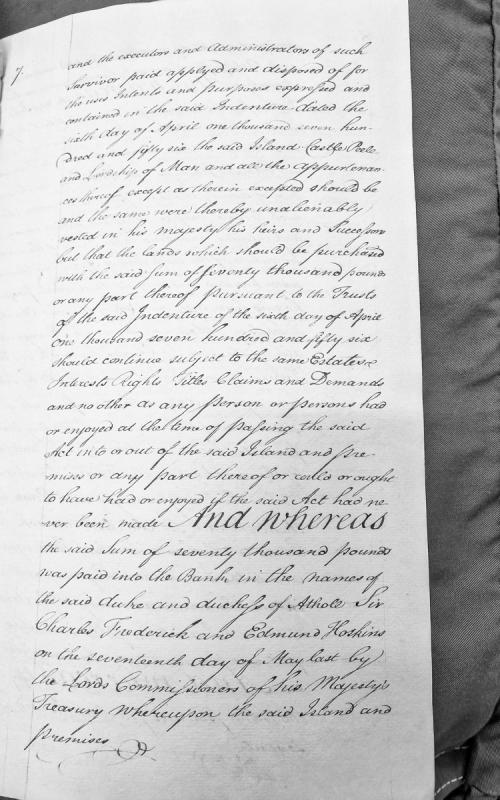 7.
and the executors and Administrators of such
Survivor paid applyed and disposed of for
the uses Intents and purposes expressed and
contained in the said Indenture dated the
sixth day of April one thousand seven hun-
dred and fifty six the said Island Castle Peele
and Lordship of Man and all the Appurtenan-
ces thereof except as therein excepted should be
and the same were thereby unalienably
vested in his majesty his heirs and Successors
but that the lands which should be purchased
with the said sum of seventy thousand pounds
or any part thereof pursuant to the Trusts
of the said Indenture of the sixth day of April
one thousand seven hundred and fifty six
should continue subject to the same Estates
Interests Rights Titles Claims and Demands
and no other as any person or persons had
or enjoyed at the time of passing the said
Act into or out of the said Island and pre-
mises or any part thereof or could or ought
to have had or enjoyed if the said Act had ne-
ver been made And whereas
the said Sum of seventy thousand pounds
was paid into the Bank in the names of
the said duke and duchess of Athole Sir
Charles Frederick and Edmund Hoskins
on the seventeenth day of May last by
the Lords Commissioners of his Majesty's
Treasury whereupon the said Island and
premises